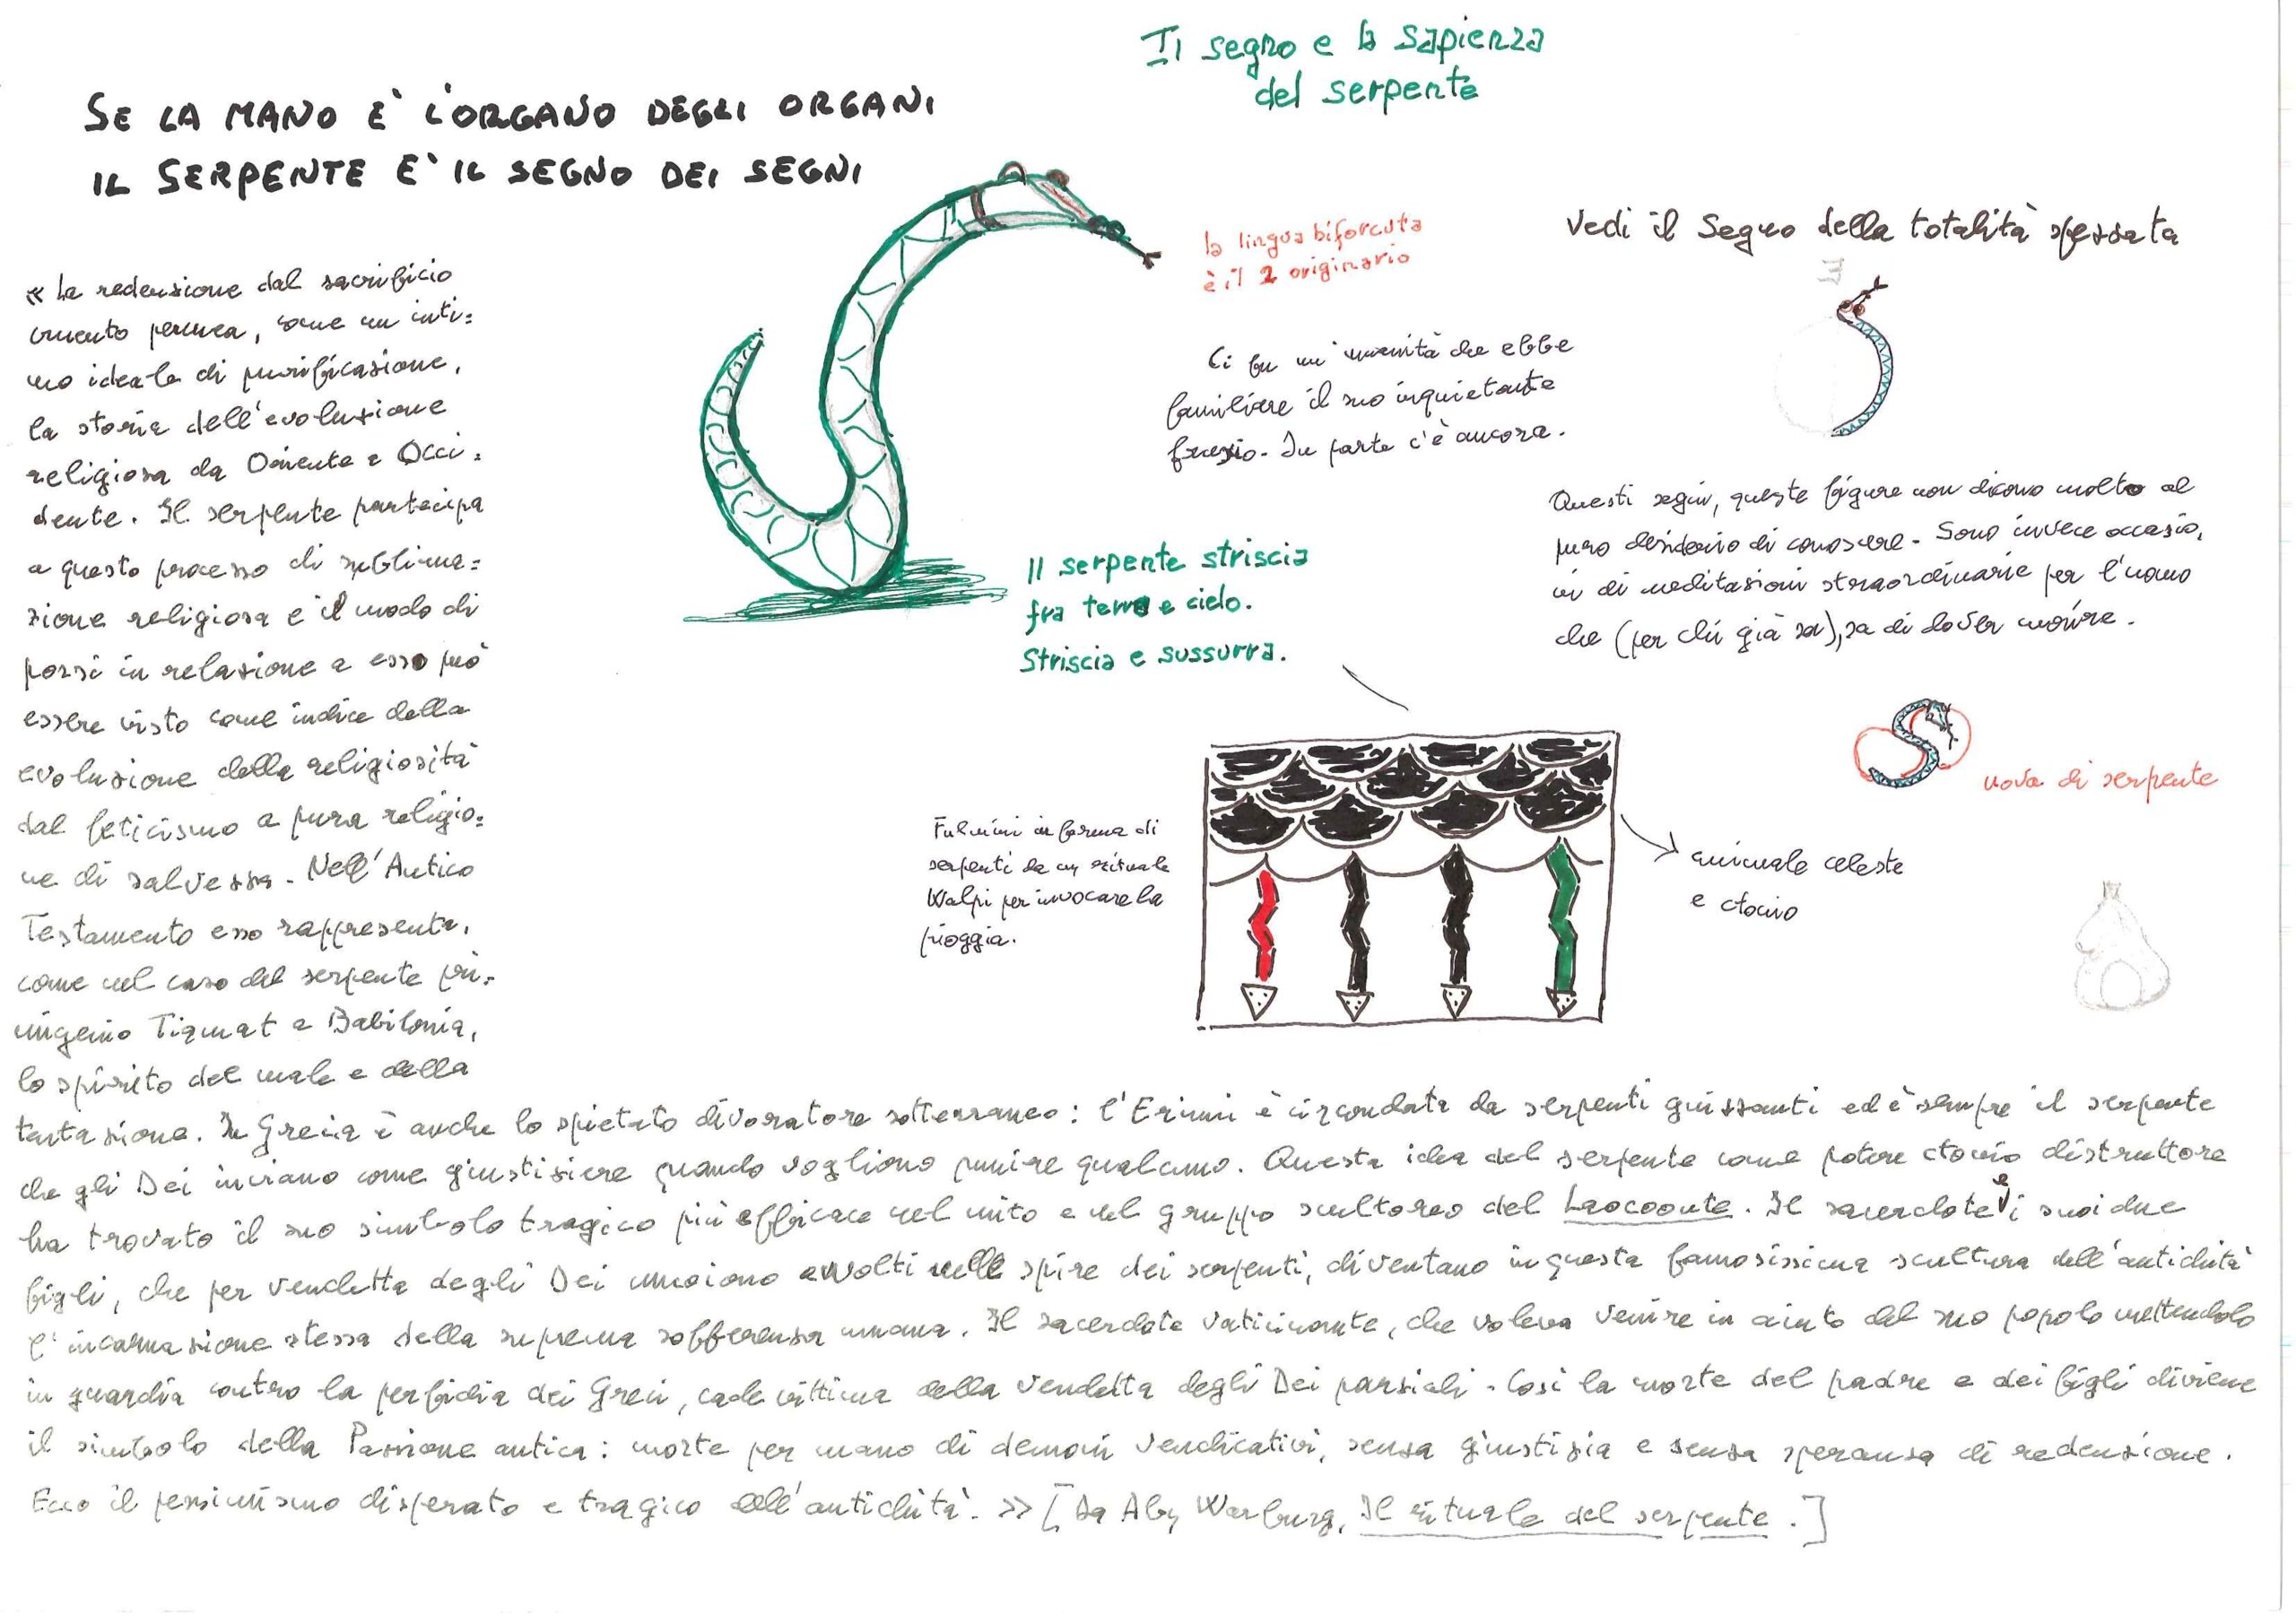 Il segno e la sapienza
del serpente
SE LA MANO È L'ORGANO DEGLI ORGANI
IL SERPENTE E' IL SEGNO DEI SEGNI
la lingua biforcuta
è il 2 originario
Vedi il Segno della totalità spezzata
Ci fu un'umanità che ebbe
familiare il suo inquietante
fregio. In parte c'è ancora.
Questi segni, queste figure non dicono molto al
puro desiderio di conoscere. Sono invece occasio,
ni di meditazioni straordinarie per l'uomo
che (per chi già sa), sa di dover morire.
Il serpente striscia
fra terra e cielo.
Striscia e sussurra.
uova di serpente
Fulmini in forma di
serpenti da un rituale
Walpi per invocare la
pioggia.
animale celeste
e ctonio
« La redenzione dal sacrificio
cruento permea, come un inti=
mo ideale di purificazione,
la storia dell'evoluzione
religiosa da Oriente a Occi=
dente. Il serpente partecipa
a questo processo di sublima=
zione religiosa e il modo di
porsi in relazione a esso può
essere visto come indice della
evoluzione della religiosità
dal feticismo a pura religio=
ne di salvezza. Nell'Antico
Testamento esso rappresenta,
come nel caso del serpente pri=
migenio Tiamat a Babilonia,
lo spirito del male e della
tentazione. In Grecia è anche lo spietato divoratore sotterraneo: l'Erinni è circondata da serpenti guizzanti ed è sempre il serpente
che gli Dei inviano come giustiziere quando vogliono punire qualcuno. Questa idea del serpente come potere ctonio distruttore
ha trovato il suo simbolo tragico più efficace nel mito e nel gruppo scultoreo del Laocoonte. Il sacerdote e i suoi due
figli, che per vendetta degli Dei muoiono avvolti nelle spire dei serpenti, diventano in questa famosissima scultura dell'antichità
l'incarnazione stessa della suprema sofferenza umana. Il sacerdote vaticinante, che voleva venire in aiuto del suo popolo mettendolo
in guardia contro la perfidia dei Greci, cade vittima della vendetta degli Dei parziali. Così la morte del padre e dei figli diviene
il simbolo della Passione antica: morte per mano di demoni vendicativi, senza giustizia e senza speranza di redenzione.
Ecco il pessimismo disperato e tragico dell'antichità. >> [Da Aby Warburg, Il rituale del serpente.]